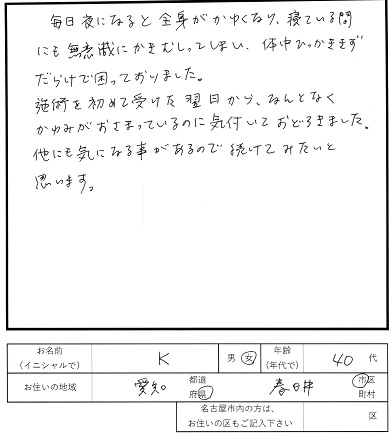 毎日夜になると全身がかゆくなり、寝ている間
にも無意識にかきむしってしまい、体中ひっかききず
だらけで困っておりました。
施術を初めて受けた翌日から、なんとなく
かゆみがおさまっているのに気付いておどろきました。
他にも気になる事があるので続けてみたいと
思います。
お名前
(イニシャルで) K 男 女 年齢
(年代で) 40 代
お住いの地域 愛知 都道
府県 春日井 市区
町村
名古屋市内の方は、
お住いの区もご記入下さい 区